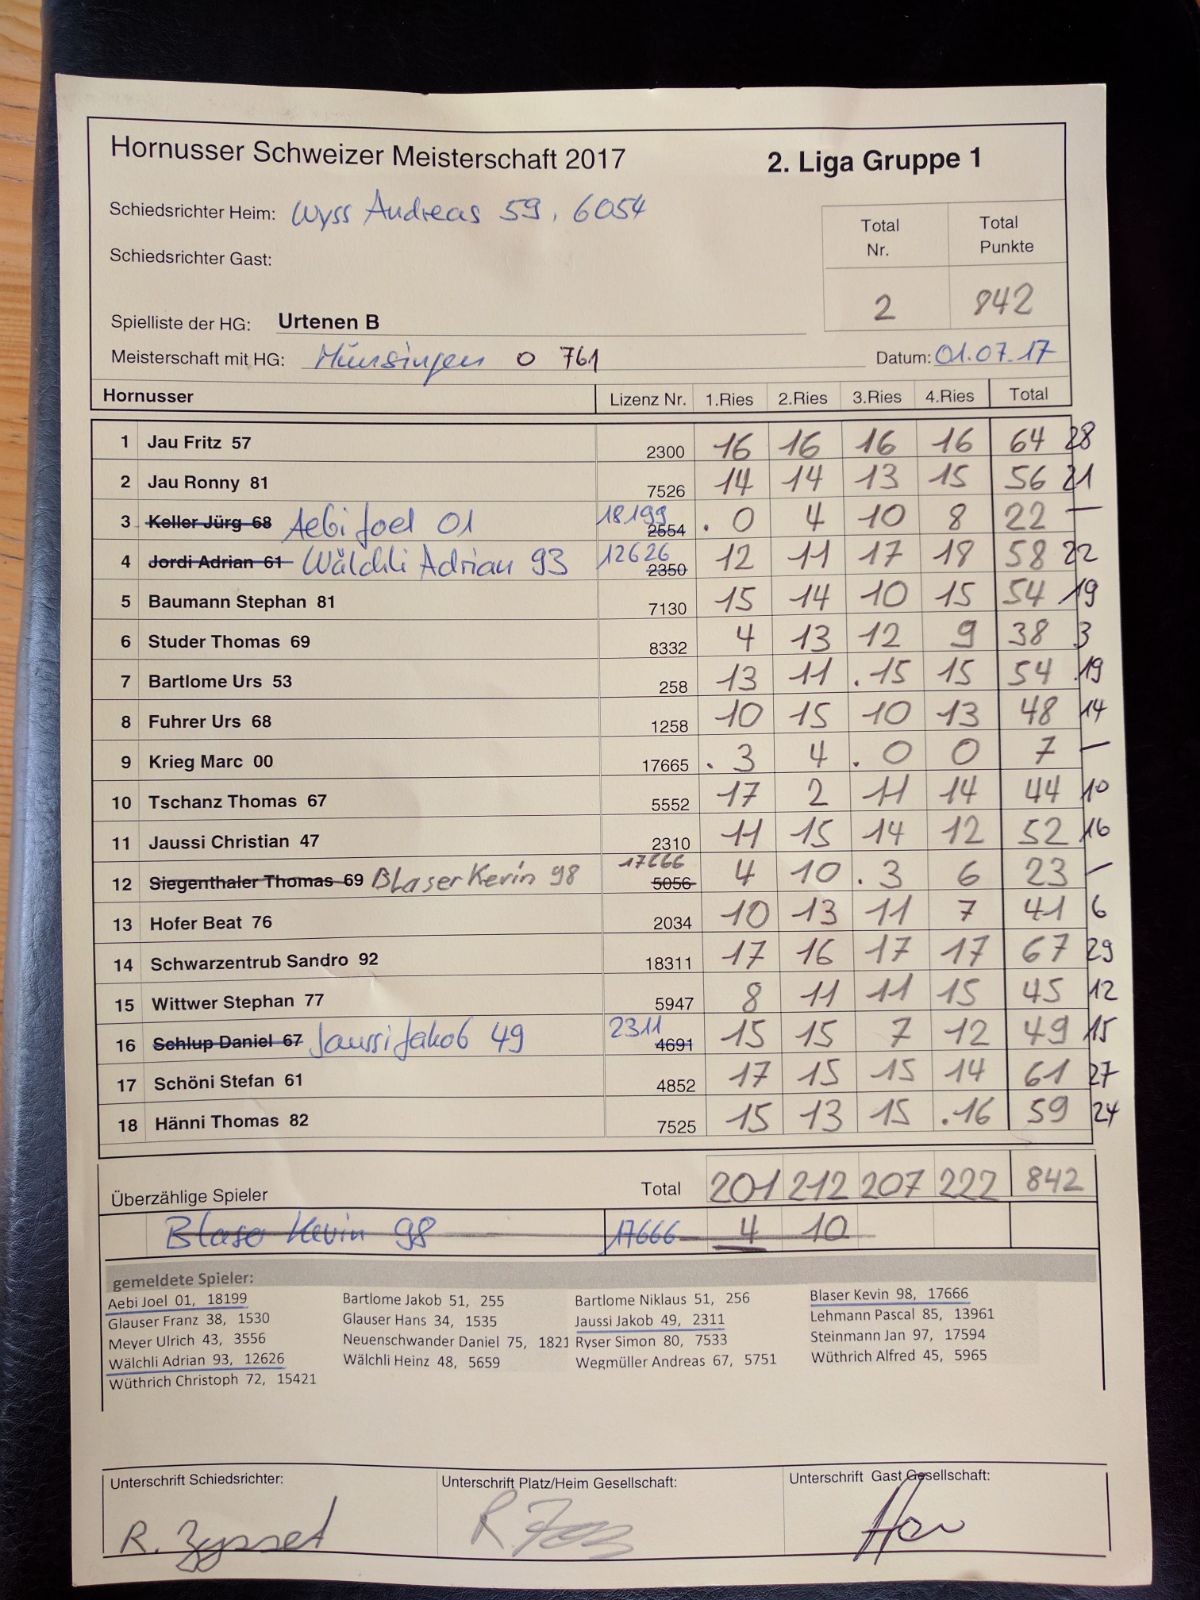 Hornusser Schweizer Meisterschaft 2017 2. Liga Gruppe 1
Schiedsrichter Heim: Wyss Andreas 59, 6054
Total Nr. Total Punkte
Schiedsrichter Gast:
2 842
Spielliste der HG: Urtenen B
Meisterschaft mit HG: Münsingen 0 761 Datum: 01.07.17
Hornusser Lizenz Nr. 1.Ries 2.Ries 3.Ries 4.Ries Total
1 Jau Fritz 57 2300 16 16 16 16 64 28
2 Jau Ronny 81 7526 14 14 13 15 56 21
3 Keller Jürg 68 Aebi Joel 01 18199 2554 . 0 4 10 8 22 —
4 Jordi Adrian 61 Wälchli Adrian 93 12626 2350 12 11 17 18 58 22
5 Baumann Stephan 81 7130 15 14 10 15 54 19
6 Studer Thomas 69 8332 4 13 12 9 38 3
7 Bartlome Urs 53 258 13 11 . 15 15 54 19
8 Fuhrer Urs 68 1258 10 15 10 13 48 14
9 Krieg Marc 00 17665 . 3 4 . 0 0 7 —
10 Tschanz Thomas 67 5552 17 2 11 14 44 10
11 Jaussi Christian 47 2310 11 15 14 12 52 16
12 Siegenthaler Thomas 69 Blaser Kevin 98 17666 5056 4 10 . 3 6 23 —
13 Hofer Beat 76 2034 10 13 11 7 41 6
14 Schwarzentrub Sandro 92 18311 17 16 17 17 67 29
15 Wittwer Stephan 77 5947 8 11 11 15 45 12
16 Schlup Daniel 67 Jaussi Jakob 49 2311 4691 15 15 7 12 49 15
17 Schöni Stefan 61 4852 17 15 15 14 61 27
18 Hänni Thomas 82 7525 15 13 15 . 16 59 24
Überzählige Spieler Total 201 212 207 222 842
Blaser Kevin 98 17666 4 10
gemeldete Spieler:
Aebi Joel 01, 18199 Bartlome Jakob 51, 255 Bartlome Niklaus 51, 256 Blaser Kevin 98, 17666
Glauser Franz 38, 1530 Glauser Hans 34, 1535 Jaussi Jakob 49, 2311 Lehmann Pascal 85, 13961
Meyer Ulrich 43, 3556 Neuenschwander Daniel 75, 1821 Ryser Simon 80, 7533 Steinmann Jan 97, 17594
Wälchli Adrian 93, 12626 Wälchli Heinz 48, 5659 Wegmüller Andreas 67, 5751 Wüthrich Alfred 45, 5965
Wüthrich Christoph 72, 15421
Unterschrift Schiedsrichter: Unterschrift Platz/Heim Gesellschaft: Unterschrift Gast Gesellschaft:
R. Zysset R